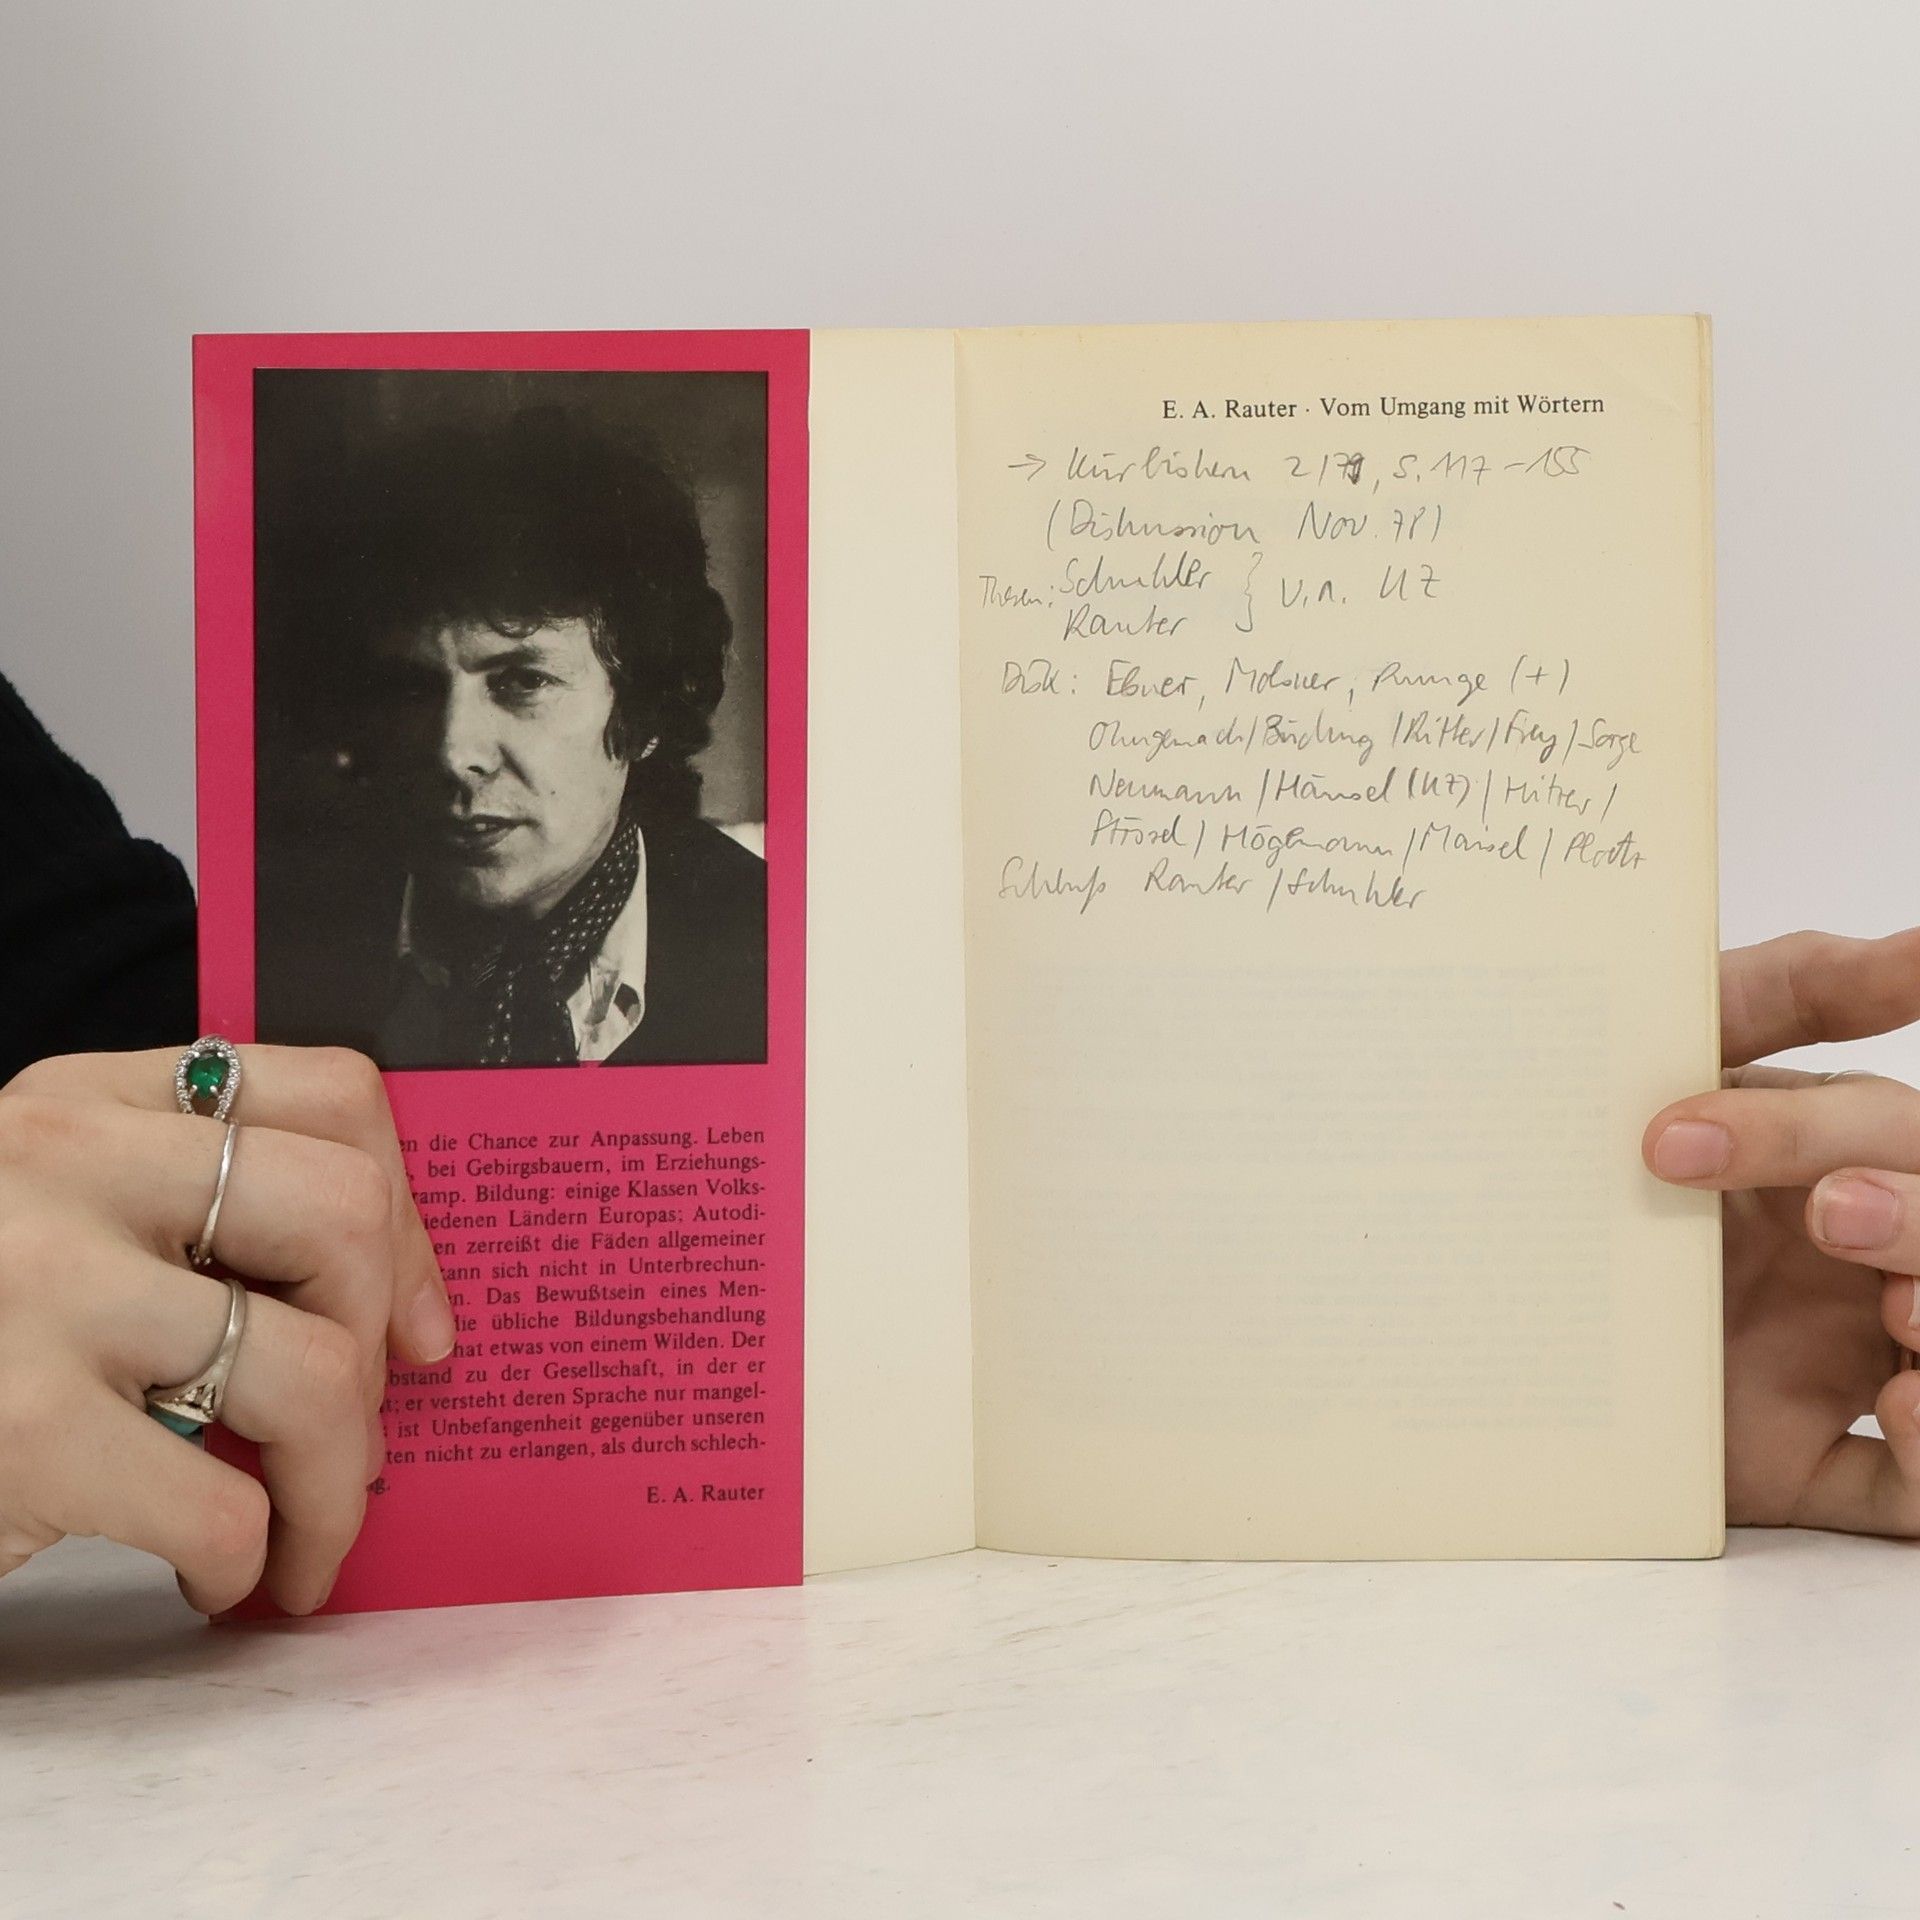 en die Chance zur Anpassung. Leben
, bei Gebirgsbauern, im Erziehungs-
ramp. Bildung: einige Klassen Volks-
iedenen Ländern Europas; Autodi-
en zerreißt die Fäden allgemeiner
ann sich nicht in Unterbrechun-
n. Das Bewußtsein eines Men-
die übliche Bildungsbehandlung
hat etwas von einem Wilden. Der
bstand zu der Gesellschaft, in der er
t; er versteht deren Sprache nur mangel-
ist Unbefangenheit gegenüber unseren
ten nicht zu erlangen, als durch schlech-
g.
E. A. Rauter
E. A. Rauter · Vom Umgang mit Wörtern
→ Kürbiskern 2/79, S. 117-155
(Diskussion Nov. 78)
Thesen: Schuhler
Rauter } u.a. UZ
Disk: Ebner, Molsner, Runge (+)
Ohngemach/Büding/Ritter/Frey/Sorge
Neumann/Hänsel (UZ)/Hitzer/
Stössel/Högemann/Maisel/
Schluß Rauter/Schuhler